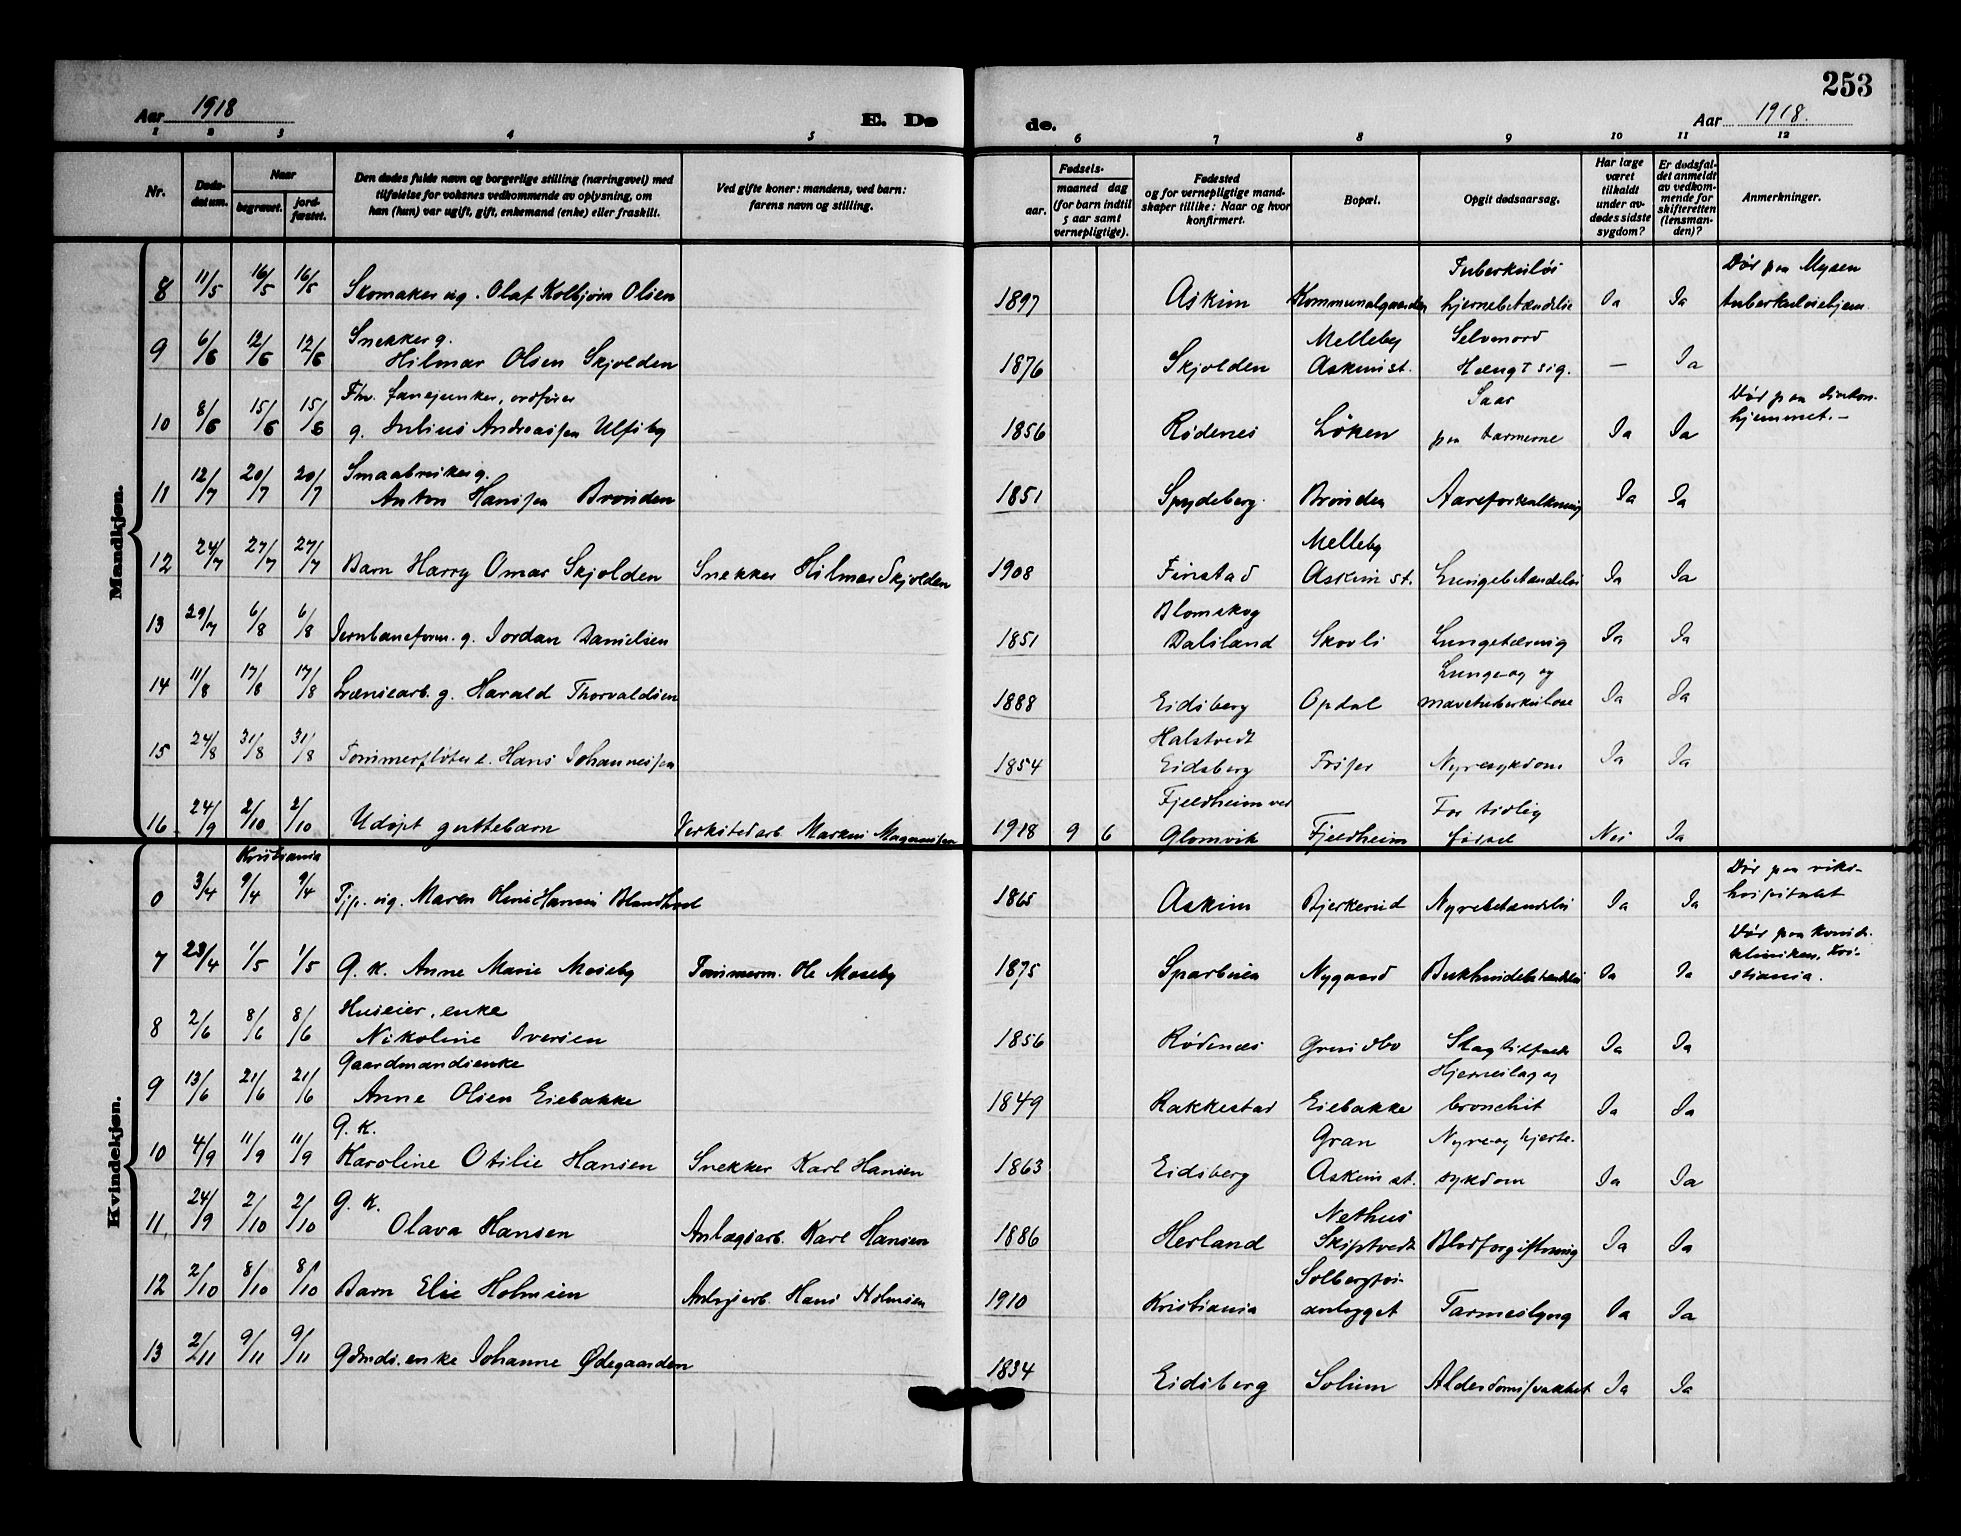 253
Aar 1918
E. Dø
de.
Aar 1918.
1 2 3 4 5 6 7 8 9 10 11 12
Nr.
Døds-
datum.
Naar
begravet.
jord-
fæstet.
Den dødes fulde navn og borgerlige stilling (næringsvei) med
tilføielse for voksnes vedkommende av oplysning, om
han (hun) var ugift, gift, enkemand (enke) eller fraskilt.
Ved gifte koner: mandens, ved barn:
farens navn og stilling.
Fødsels-
aar.
maaned dag
(for barn indtil
5 aar samt
vernepligtige).
Fødested
og for vernepligtige mand-
skaper tillike: Naar og hvor
konfirmert.
Bopæl.
Opgit dødsaarsag.
Har læge
været
tilkaldt
under av-
dødes sidste
sygdom?
Er dødsfal-
det anmeldt
av vedkom-
mende for
skifteretten
(lensman-
den)?
Anmerkninger.
Mandkjøn.
8 11/5 16/5 16/5 Skomaker ug. Olaf Kolbjørn Olsen 1897 Askim Kommunalgaarden Tuberkuløs
hjernebetændelse Ja Ja Død paa Mysen
tuberkulosehjem
9 6/6 12/6 12/6 Snekker g.
Hilmar Olsen Skjolden 1876 Skjolden Melleby
Askim st. Selvmord
Hængt sig. — Ja
10 8/6 15/6 15/6 Fhv. fanejunker, ordfører
g. Julius Andreassen Ulfsby 1856 Rødenes Løken Saar
paa tarmerne Ja Ja Død paa diakon-
hjemmet.-
11 12/7 20/7 20/7 Smaabruker g.
Anton Hanssen Brønden 1851 Spydeberg. Brønden Aareforkalkning Ja Ja
12 24/7 27/7 27/7 Barn Harry Omar Skjolden Snekker Hilmar Skjolden 1908 Finstad Melleby
Askim st. Lungebetændelse Ja Ja
13 29/7 6/8 6/8 Jernbaneform. g. Jordan Danielsen 1851 Blomskog
Dalsland Skovli Lungetæring Ja Ja
14 11/8 17/8 17/8 Lænsearb. g. Harald Thorvaldsen 1888 Eidsberg Opdal Lunge- og
mavetuberkulose Ja Ja
15 24/8 31/8 31/8 Tømmerfløter e. Hans Johannessen 1854 Halstvedt
Eidsberg Fosser Nyresykdom Ja Ja
16 24/9 2/10 2/10 Udøpt guttebarn Verkstedarb Markus Magnussen 1918 9 6 Fjeldheim ved
Glomvik Fjeldheim For tidlig
fødsel Nei Ja
Kvindekjøn.
Kristiania
0 3/4 9/4 9/4 Tjp. ug. Maren Oline Hansen 1865 Askim Bjerkerud Nyrebetændelse Ja Ja Død paa riks-
hospitalet
7 28/4 1/5 1/5 G. k. Anne Marie Moseby Tømmerm. Ole Moseby 1875 Sparbuen Nygaard Bukhindebetændelse Ja Ja Død paa kvinde-
kliniken, Kri-
stiania.
8 2/6 8/6 8/6 Huseier, enke
Nikoline Iversen 1856 Rødenes Grundbo Slagtilfælde Ja Ja
9 13/6 21/6 21/6 Gaardmandsenke
Anne Olsen Eiebakke 1849 Rakkestad Eiebakke Hjerneslag og
bronchit Ja Ja
10 4/9 11/9 11/9 G. k.
Karoline Otilie Hansen Snekker Karl Hansen 1863 Eidsberg Gran
Askim st. Nyre og hjerte-
sykdom Ja Ja
11. 24/9 2/10 2/10 G. k.
Olava Hansen Anlægsarb. Karl Hansen 1886 Herland Nethus
Skiptvedt Blodforgiftning Ja Ja
12 2/10 8/10 8/10 Barn Else Holmsen Anlægsarb. Hans Holmsen 1910 Kristiania Solbergfos-
anlægget Tarmeslyng Ja Ja
13 2/11 9/11 9/11 Gdmds. enke Johanne Ødegaarden 1834 Eidsberg Solum Alderdomssvakhet Ja Ja